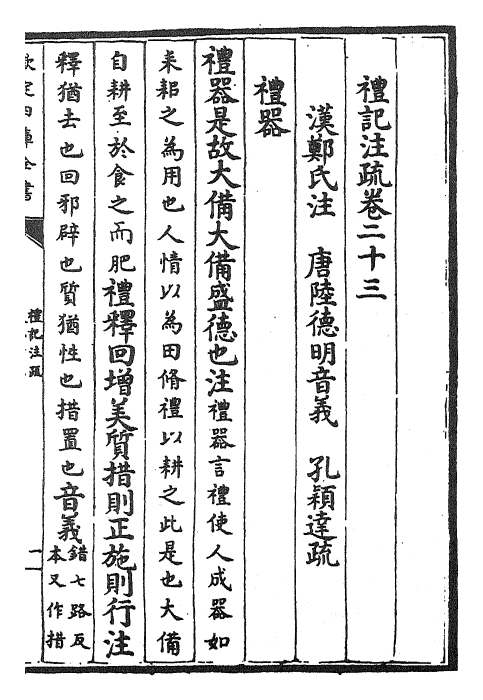 禮記注疏卷二十三
漢鄭氏注 唐陸德明音義 孔穎達疏
禮器
禮器是故大備大備盛德也注禮器言禮使人成器如
耒耜之為用也人情以為田脩禮以耕之此是也大備
自耕至於食之而肥禮釋回增美質措則正施則行注
釋猶去也回邪辟也質猶性也措置也音義錯七路反
本又作措
欽定四庫全書
禮記注疏
一